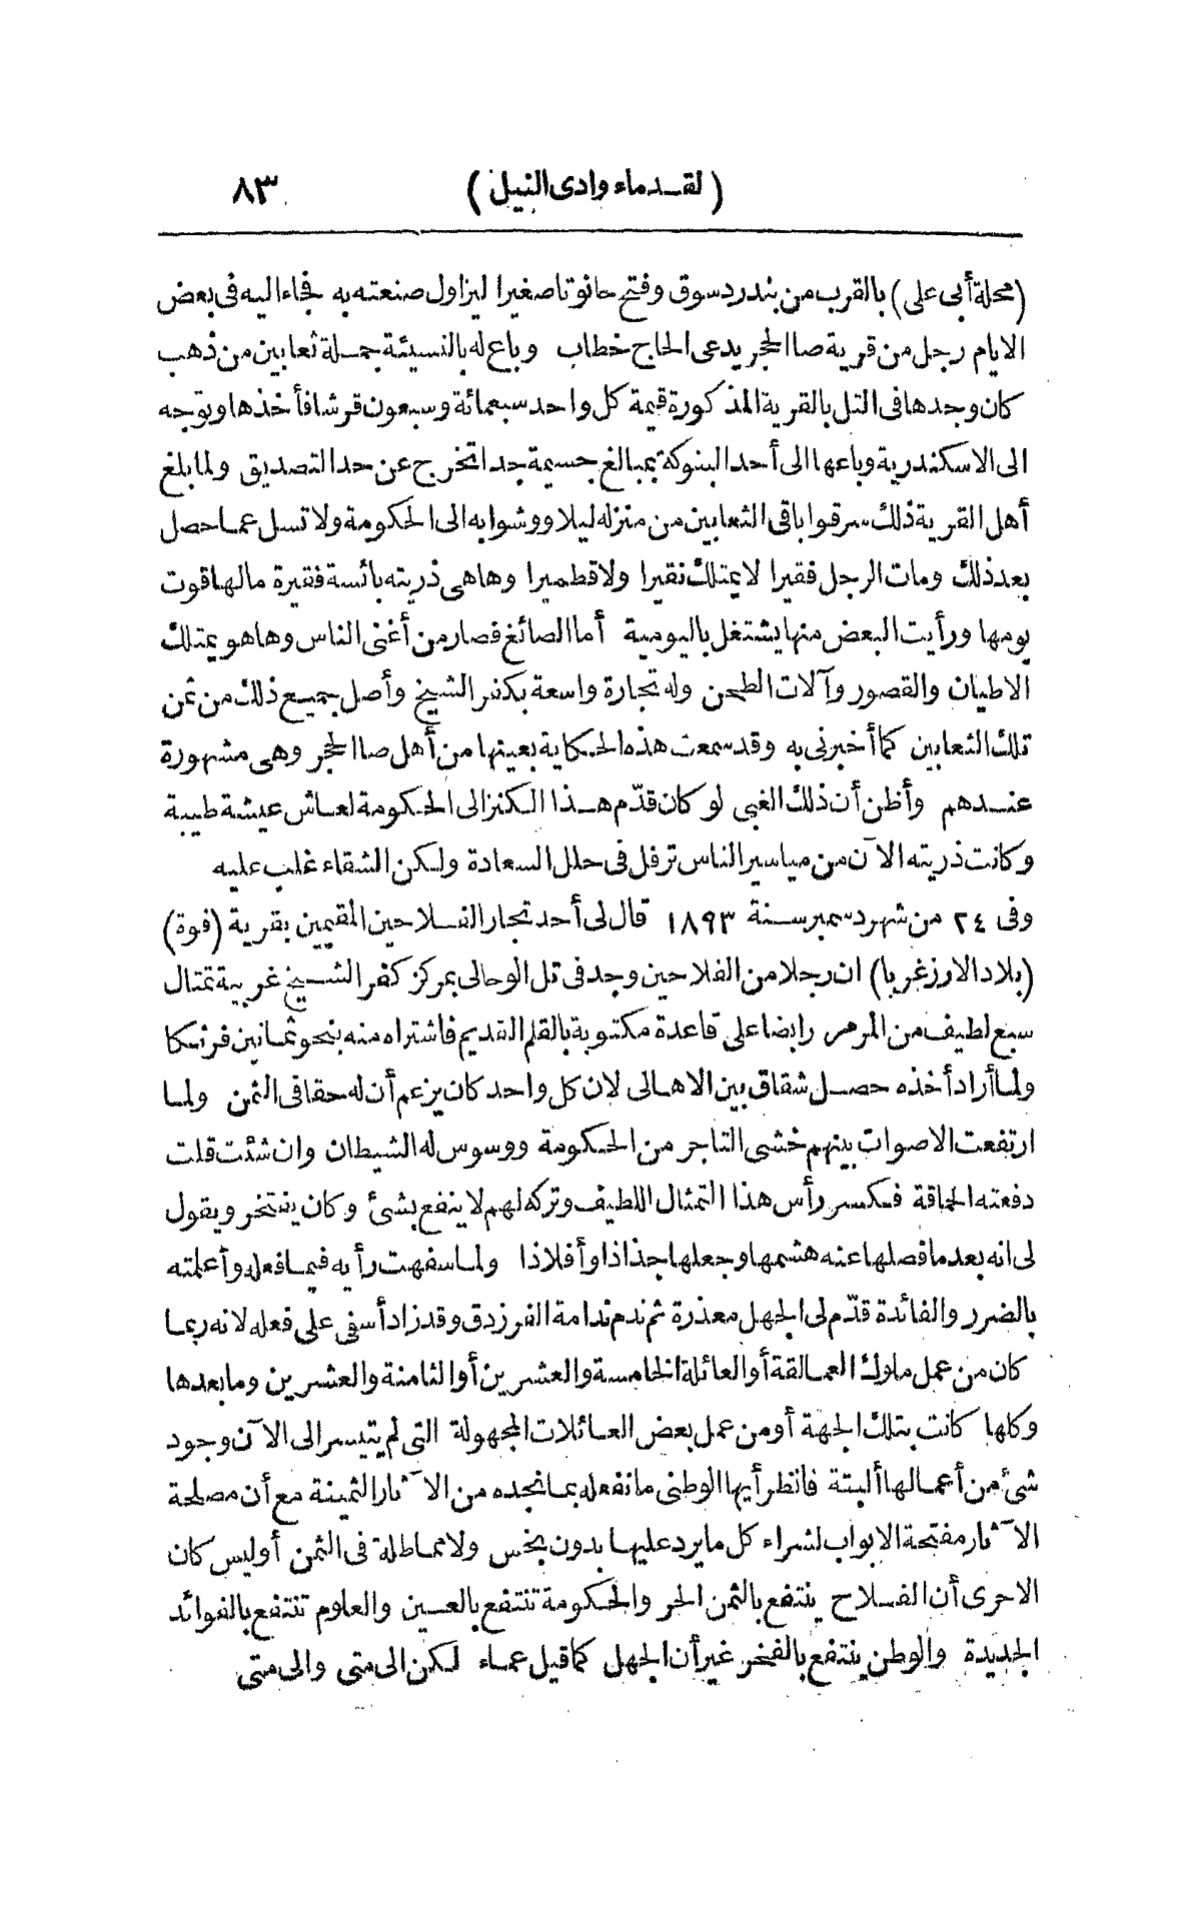 (لقدماء وادى النيل) ٨٣
(محلة أبى على) بالقرب من بندر دسوق وفتح حانوتا صغيرا ليزاول صنعته به فجاء اليه فى بعض
الايام رجل من قرية صا الحجر يدعى الحاج خطاب وباع له بالنسيئة جملة ثعابين من ذهب
كان وجدها فى التل بالقرية المذكورة قيمة كل واحد سبعمائة وسبعون قرشا فأخذها وتوجه
الى الاسكندرية وباعها الى أحد البنوكة بمبالغ جسيمة جدا تخرج عن حد التصديق ولما بلغ
أهل القرية ذلك سرقوا باقى الثعابين من منزله ليلا ووشوا به الى الحكومة ولا تسل عما حصل
بعد ذلك ومات الرجل فقيرا لا يمتلك نقيرا ولا قطميرا وها هى ذريته بائسة فقيرة مالها قوت
يومها ورأيت البعض منها يشتغل باليومية أما الصائغ فصار من أغنى الناس وها هو يمتلك
الاطيان والقصور وآلات الطحن وله تجارة واسعة بكفر الشيخ وأصل جميع ذلك من ثمن
تلك الثعابين كما أخبرنى به وقد سمعت هذه الحكاية بعينها من أهل صا الحجر وهى مشهورة
عندهم وأظن أن ذلك الغبى لو كان قدّم هذا الكنز الى الحكومة لعاش عيشة طيبة
وكانت ذريته الآن من مياسير الناس ترفل فى حلل السعادة ولكن الشقاء غلب عليه
وفى ٢٤ من شهر دسمبر سنة ١٨٩٣ قال لى أحد تجار الفلاحين المقيمين بقرية (فوة)
(بلاد الارز غربا) ان رجلا من الفلاحين وجد فى تل الوحالى بمركز كفر الشيخ غربية تمثال
سبع لطيف من المرمر رابضا على قاعدة مكتوبة بالقلم القديم فاشتراه منه بنحو ثمانين فرنكا
ولما أراد أخذه حصل شقاق بين الاهالى لان كل واحد كان يزعم أن له حقا فى الثمن ولما
ارتفعت الاصوات بينهم خشى التاجر من الحكومة ووسوس له الشيطان وان شئت قلت
دفعته الحماقة فكسر رأس هذا التمثال اللطيف وتركه لهم لا ينفع بشئ وكان يفتخر ويقول
لى انه بعد ما فصلها عنه هشمها وجعلها جذاذا وأفلاذا ولما سفهت رأيه فيما فعله وأعلمته
بالضرر والفائدة قدّم لى الجهل معذرة ثم ندم ندامة الفرزدق وقد زاد أسفى على فعله لانه ربما
كان من عمل ملوك العمالقة أو العائلة الخامسة والعشرين أو الثامنة والعشرين وما بعدها
وكلها كانت بتلك الجهة أو من عمل بعض العائلات المجهولة التى لم يتيسر الى الآن وجود
شئ من أعمالها ألبتة فانظر أيها الوطنى ما نفعله بما نجده من الآثار الثمينة مع أن مصلحة
الآثار مفتحة الابواب لشراء كل ما يرد عليها بدون بخس ولا مماطلة فى الثمن أوليس كان
الاحرى أن الفلاح ينتفع بالثمن الحر والحكومة تنتفع بالعين والعلوم تنتفع بالفوائد
الجديدة والوطن ينتفع بالفخر غير أن الجهل كما قيل عماء لكن الى متى والى متى